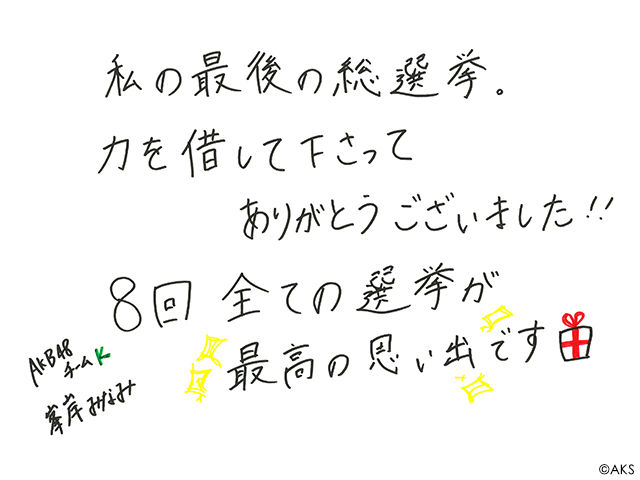 私の最後の総選挙。
力を借して下さって
ありがとうございました!!
8回全ての選挙が
最高の思い出です
AKB48
チームK
峯岸みなみ
©AKS